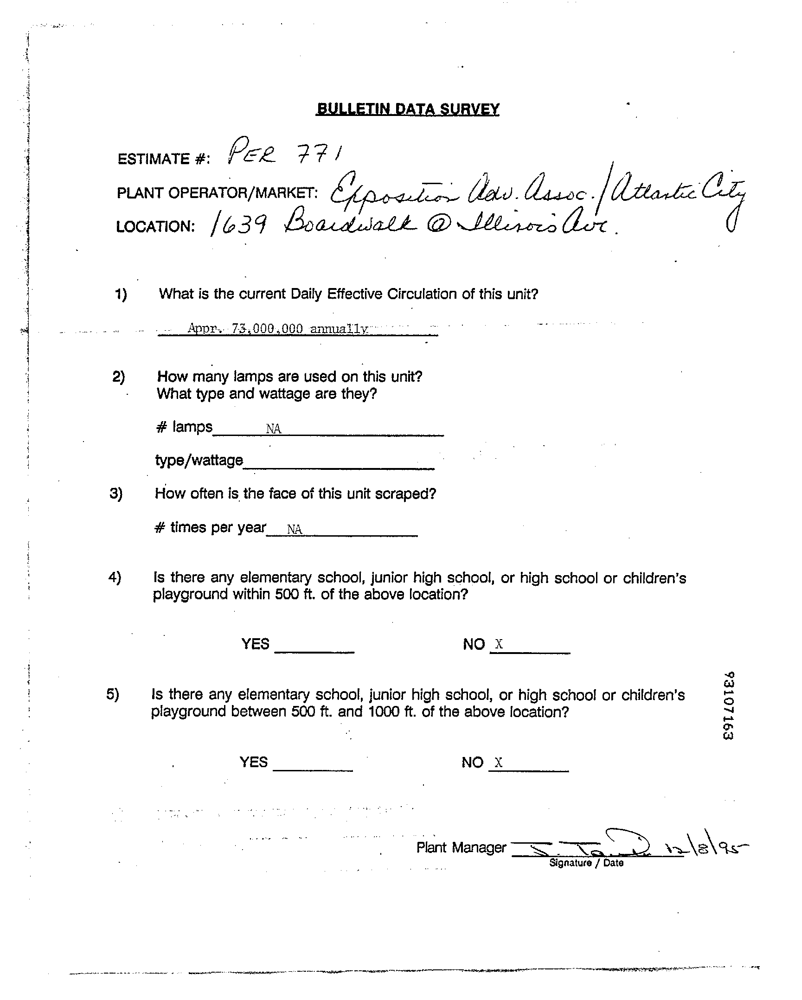 BULLETIN DATA SURVEY
ESTIMATE #: PER 771
PLANT OPERATOR/MARKET: Exposition Adv. Assoc./Atlantic City
LOCATION: 1639 Boardwalk @ Illinois Ave.
1) What is the current Daily Effective Circulation of this unit?
Appr. 73,000,000 annually
2) How many lamps are used on this unit?
What type and wattage are they?
# lamps NA
type/wattage
3) How often is the face of this unit scraped?
# times per year NA
4) Is there any elementary school, junior high school, or high school or children's
playground within 500 ft. of the above location?
YES NO X
5) Is there any elementary school, junior high school, or high school or children's
playground between 500 ft. and 1000 ft. of the above location?
YES NO X
93107163
Plant Manager 12/8/95
Signature / Date